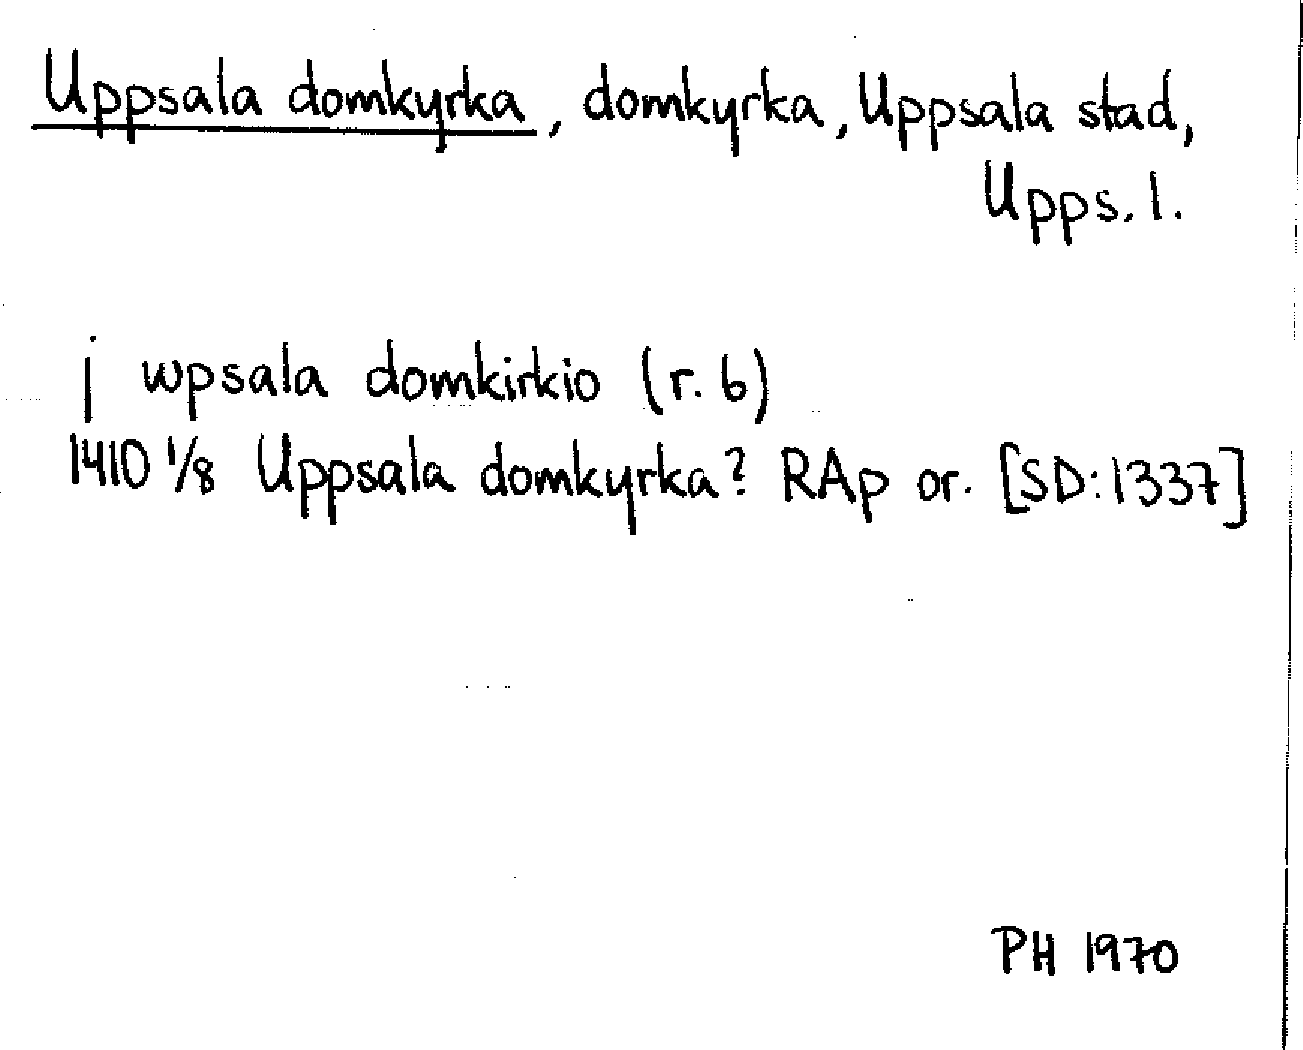 Uppsala domkyrka, domkyrka, Uppsala stad,
Upps. l.
j wpsala domkirkio (r. 6)
1410 1/8 Uppsala domkyrka? RAp or. [SD:1337]
PH 1970